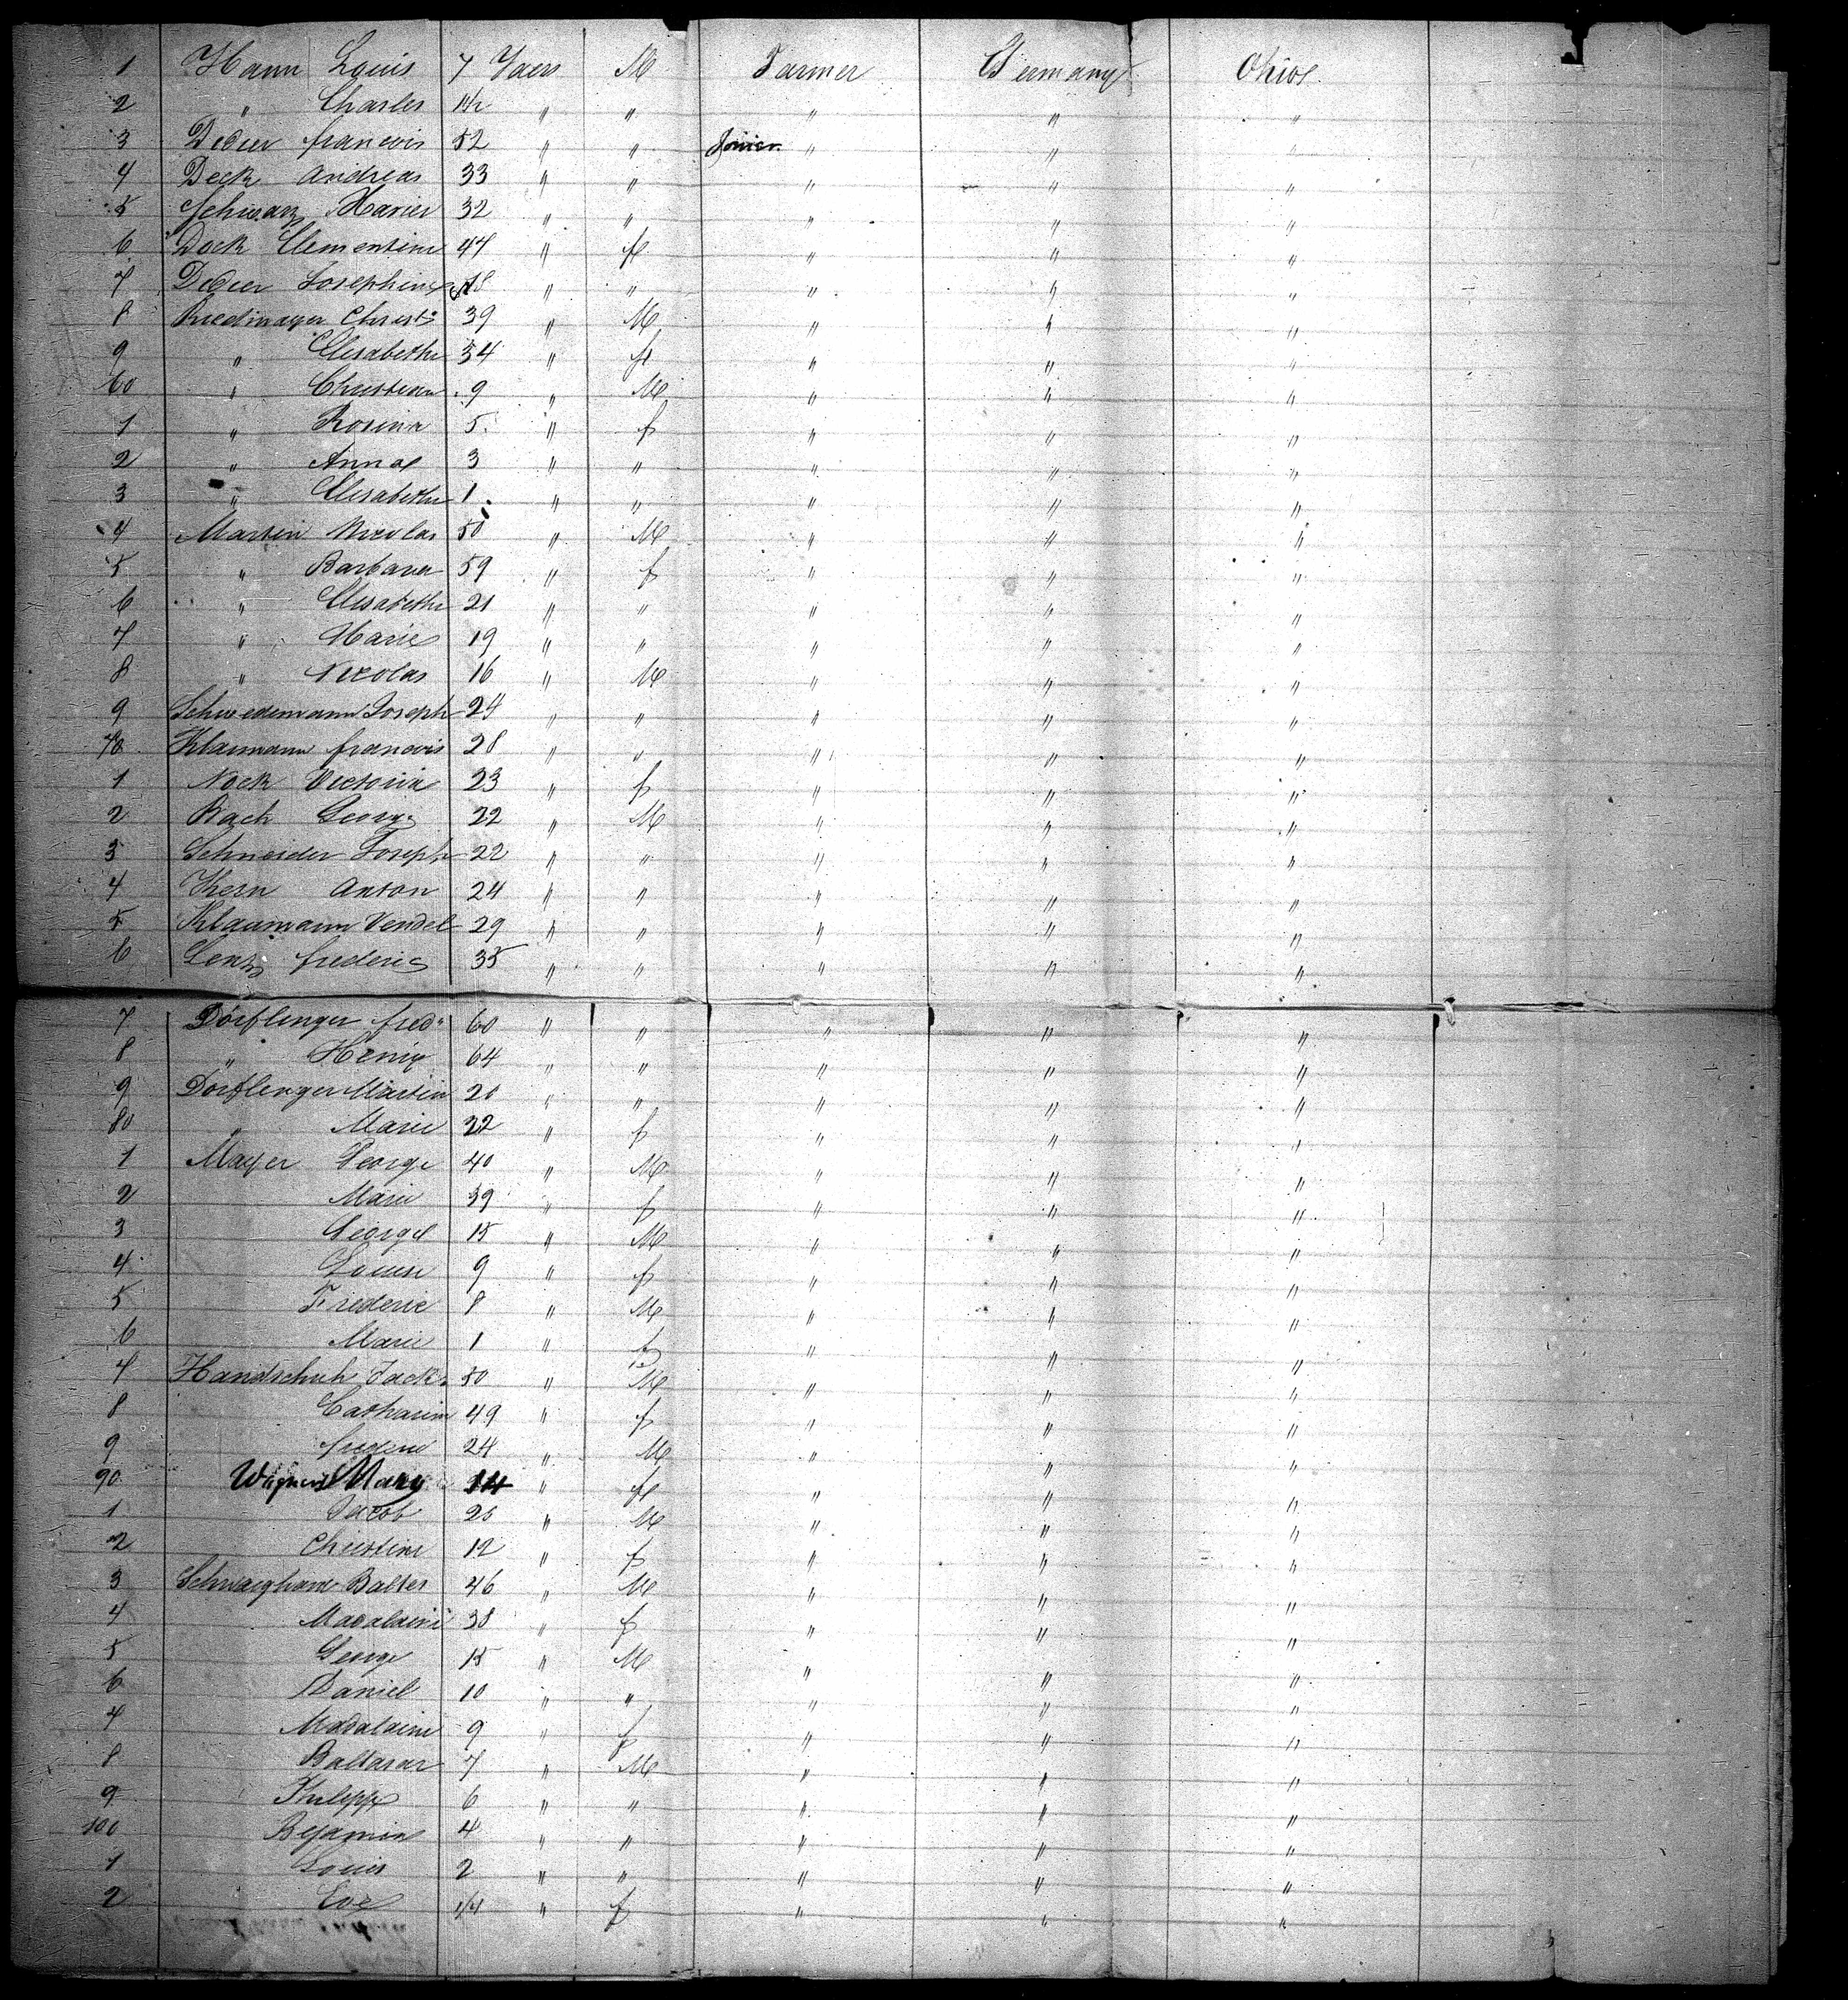 1 Hann Louis 7 Yaers M Farmer Germany Ohio
2 " Charles 1/2 " " " " "
3 Didier francois 52 " " " " "
4 Deck Andreas 33 " " " " "
5 Schwarz Xavier 32 " " " " "
6 Dock Clementine 44 " f " " "
7 Didier Josephine 18 " " " " "
8 Riedmayer Christ 39 " M " " "
9 " Elisabethe 34 " f " " "
60 " Christian 9 " M " " "
1 " Rosina 5 " f " " "
2 " Anna 3 " " " " "
3 " Elisabethe 1 " " " " "
4 Martin Nicolas 50 " M " " "
5 " Barbara 59 " f " " "
6 " Elisabethe 21 " " " " "
7 " Marie 19 " " " " "
8 " Nicolas 16 " M " " "
9 Schwedemann Joseph 24 " " " " "
70 Klaumann francois 28 " " " " "
1 Nock Victoria 23 " f " " "
2 Bach George 22 " M " " "
3 Schneider Joseph 22 " " " " "
4 Kern Anton 24 " " " " "
5 Klaumann Vendel 29 " " " " "
6 Lentz frederic 35 " " " " "
7 Dörflinger fred 60 " " " " "
8 " Henry 64 " " " " "
9 Dörflenger Martin 20 " " " " "
80 " Marie 22 " f " " "
1 Mayer George 40 " M " " "
2 Marie 39 " f " " "
3 George 15 " M " " "
4 Louise 9 " f " " "
5 Frederic 8 " M " " "
6 Marie 1 " f " " "
7 Handschuh Jack 50 " M " " "
8 Catharine 49 " f " " "
9 frederic 24 " M " " "
90 Mary 14 " f " " "
1 Jacob 26 " M " " "
2 Christine 12 " f " " "
3 Balter 46 " M " " "
4 Madalaine 38 " f " " "
5 George 15 " M " " "
6 Daniel 10 " " " " "
7 Madalaine 9 " f " " "
8 Baltasar 7 " M " " "
9 Philipp 6 " " " " "
100 Bejamin 4 " " " " "
1 Louis 2 " " " " "
2 Eve 1/4 " f " " "